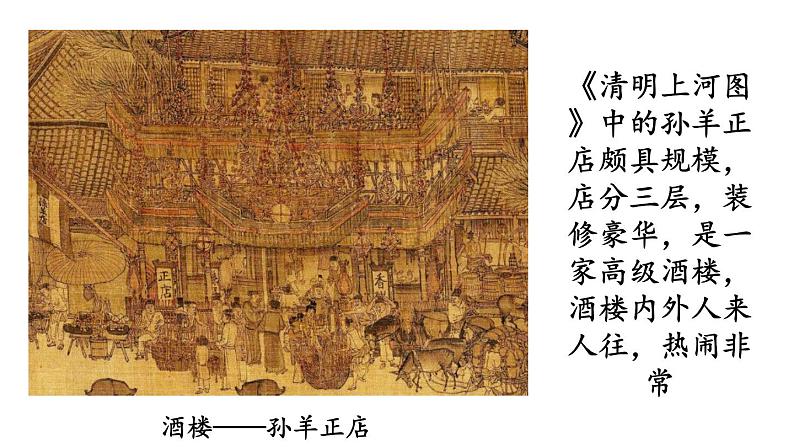 《清明上河图
》中的孙羊正
店颇具规模，
店分三层，装
修豪华，是一
家高级酒楼，
酒楼内外人来
人往，热闹非
常
正店
香
酒楼——孙羊正店